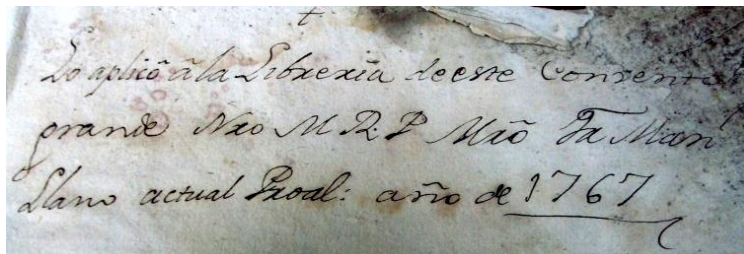 Lo aplicò â la Libreria de este Convento
grande Nro M. R. P. Mrõ Fr. Man
Llano actual Proal: año de 1767